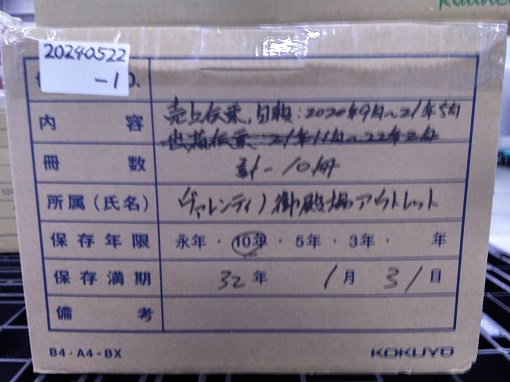 20240522
-1
O.
内容 売上伝票、日報:2020年9月〜21年5月
21年11月〜22年2月
冊数 計-10冊
所属(氏名) ヴァレンティノ御殿場アウトレット
保存年限 永年・10年・5年・3年・ 年
保存満期 32年1月31日
備考
B4・A4-BX KOKUYO